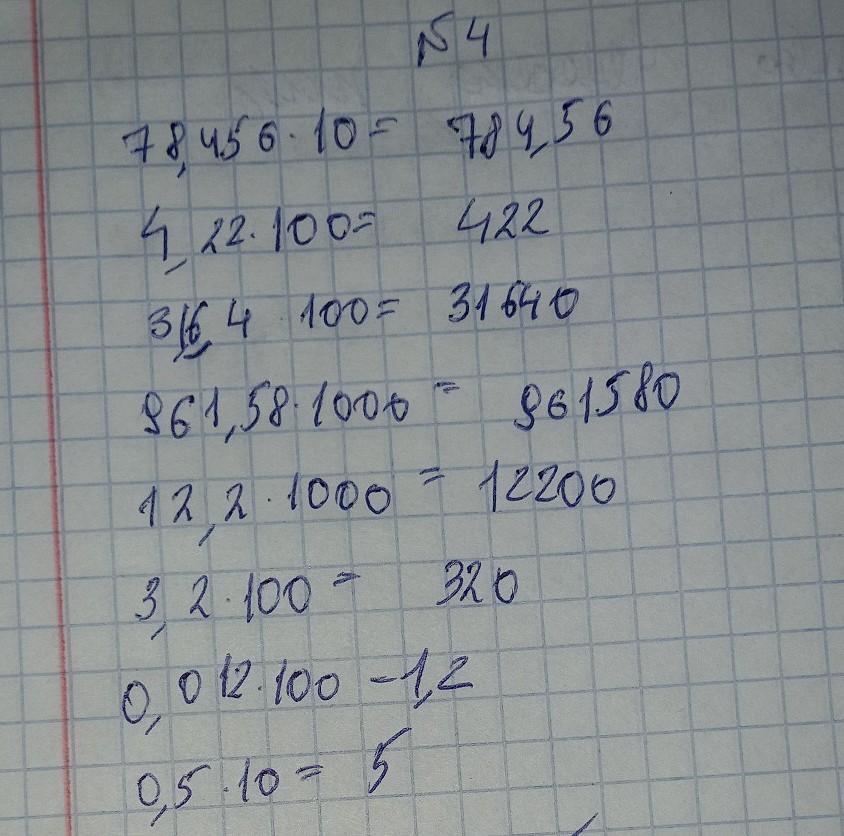 №4
78,456·10= 784,56
4,22·100= 422
316,4 100= 31640
961,58·1000= 961580
12,2·1000= 12200
3,2·100= 320
0,012·100 -1,2
0,5·10= 5